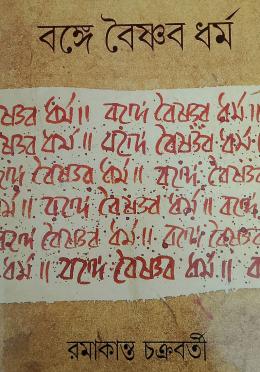 বঙ্গে বৈষ্ণব ধর্ম
ষ্ণব ধর্ম॥ বঙ্গে বৈষ্ণব ধর্ম॥
বৈষ্ণব ধর্ম॥ বঙ্গে বৈষ্ণব ধর্ম॥
বৈষ্ণব ধর্ম॥ বঙ্গে বৈষ্ণব
র্ম॥ বঙ্গে বৈষ্ণব ধর্ম॥ বঙ্গে
বঙ্গে বৈষ্ণব ধর্ম॥ বঙ্গে বৈষ্ণব
ধর্ম॥ বঙ্গে বৈষ্ণব ধর্ম॥
রমাকান্ত চক্রবর্তী